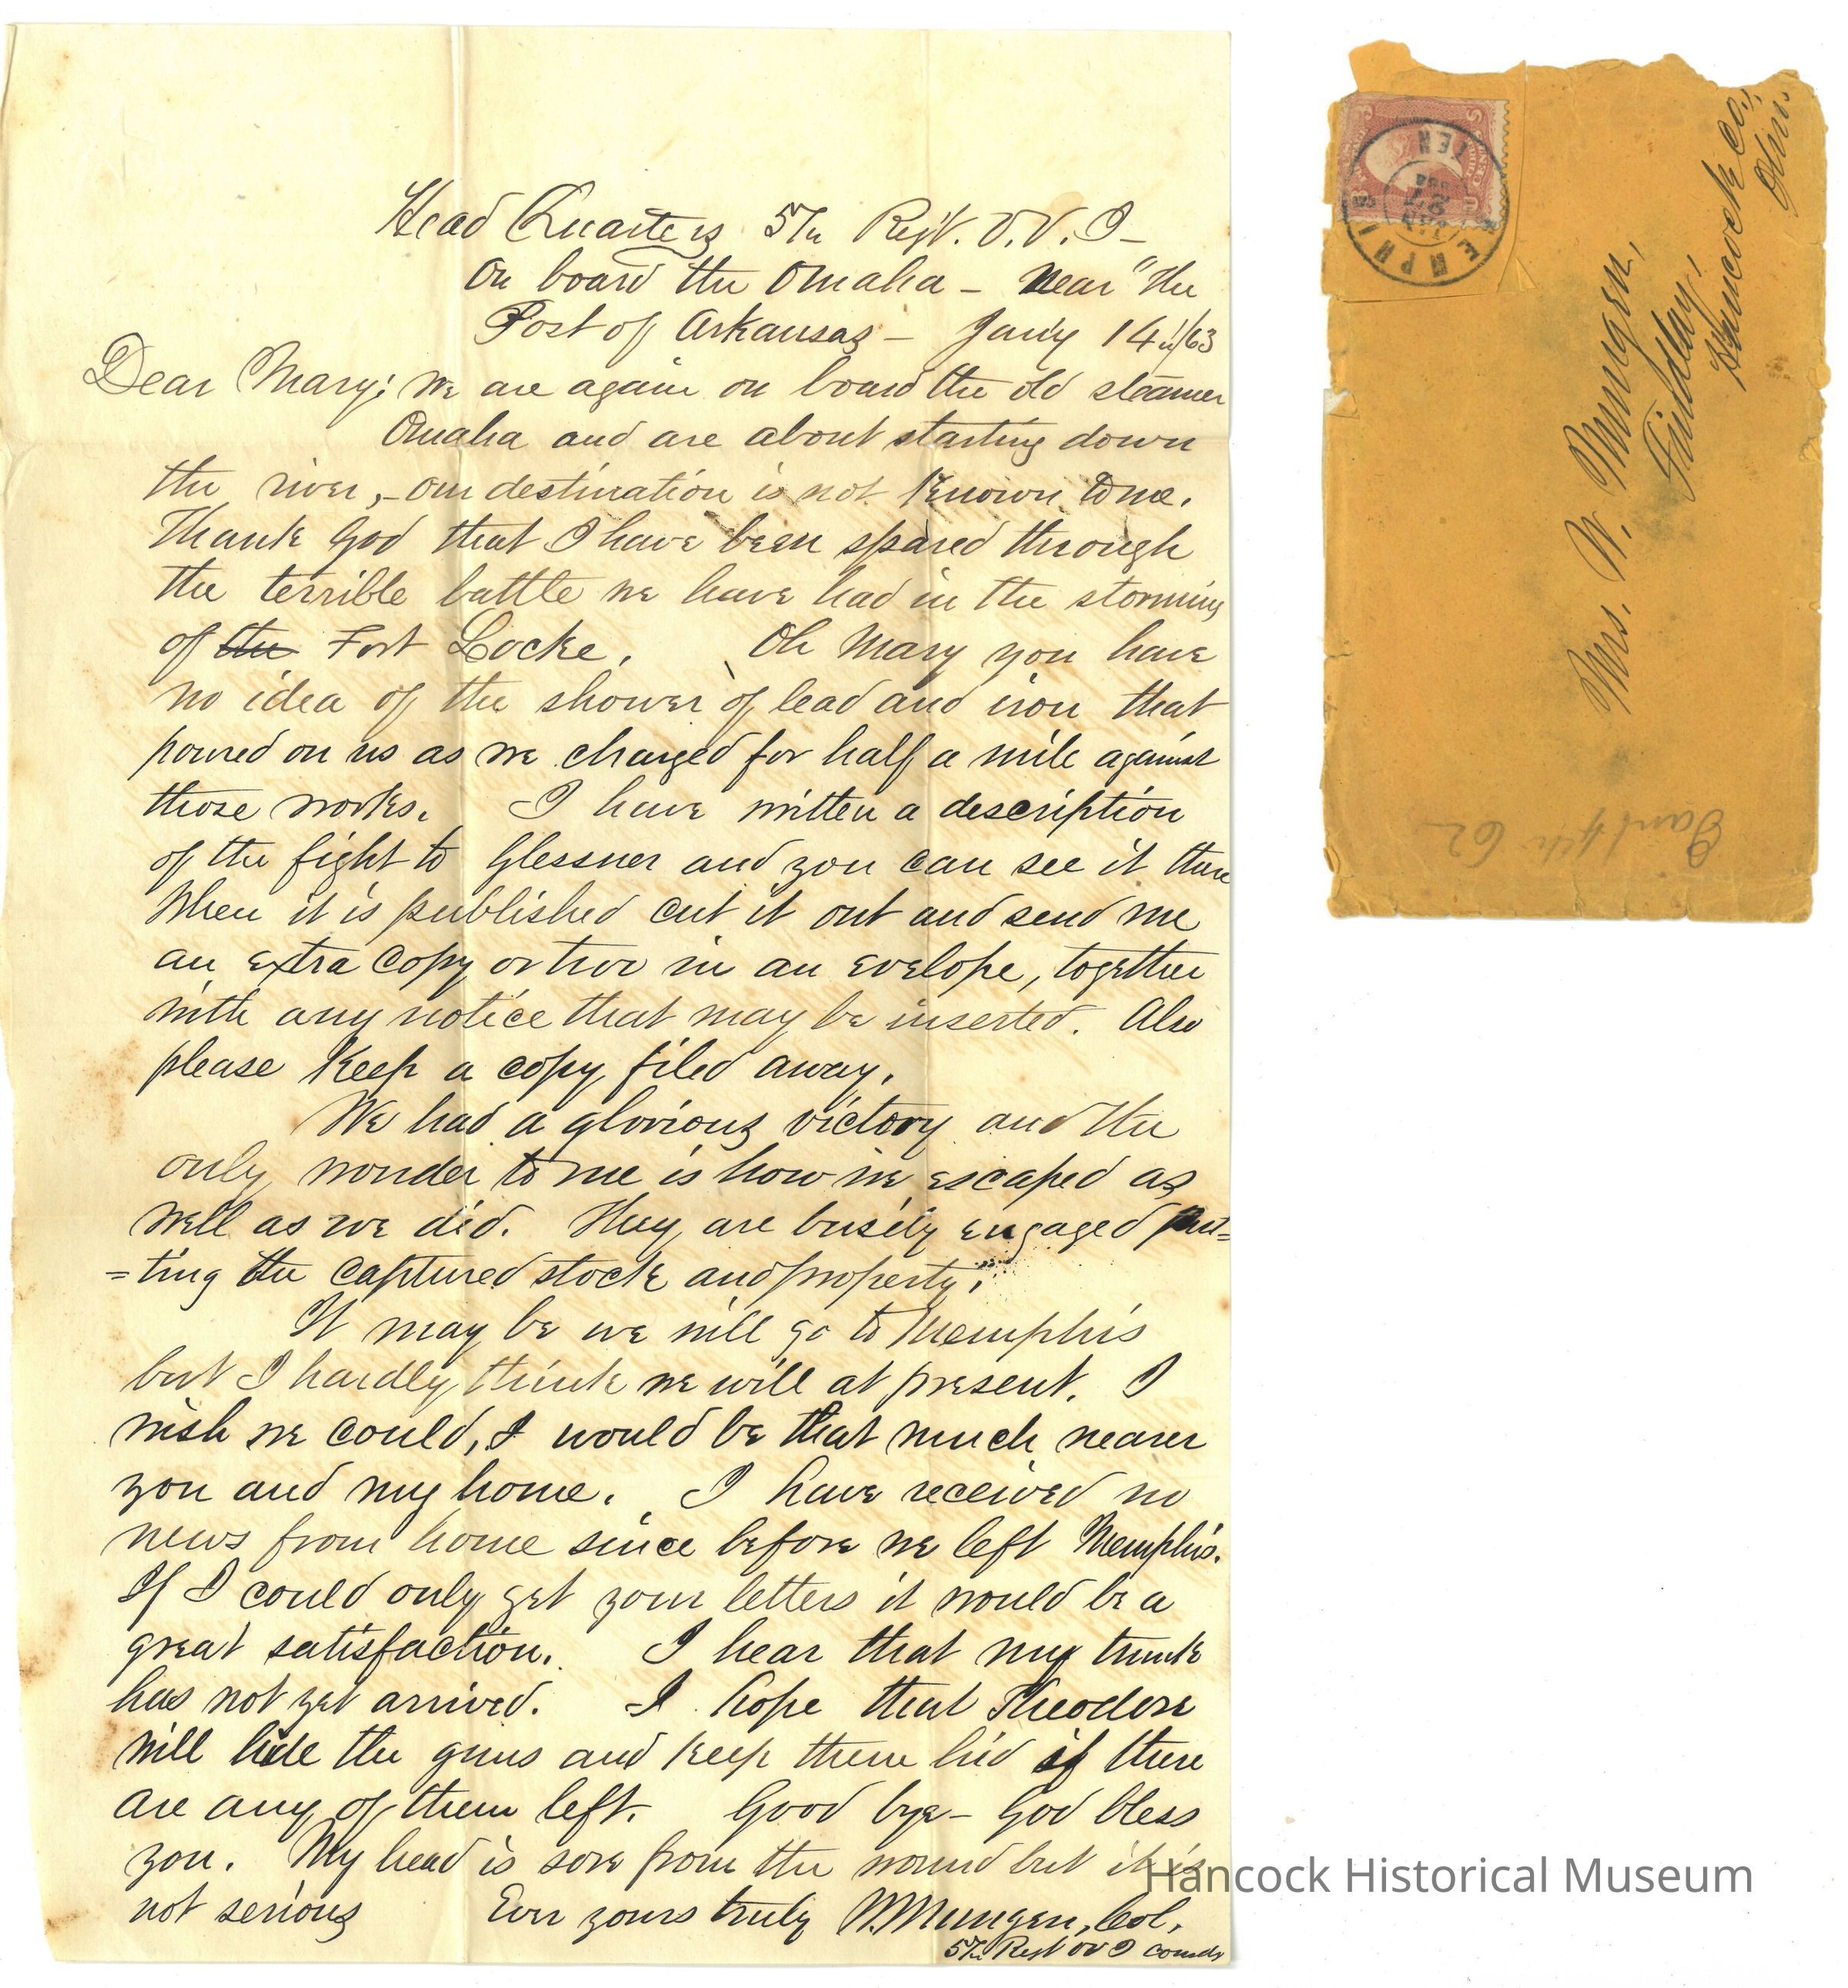 Head Quarters 57th Regt. O.V.I-
On board the Omaha - Near "The
Post of Arkansas - Jan'y 14th/63
Dear Mary: We are again on board the old steamer
Omaha and are about starting down
the river,- our destination is not known to me.
Thank God that I have been spared through
the terrible battle we have had in the storming
of the Fort Locke. Oh Mary you have
no idea of the shower of lead and iron that
poured on us as we charged for half a mile against
those works. I have written a description
of the fight to Glessner and you can see it then
When it is published cut it out and send me
an extra copy or two in an evelope, together
with any notice that may be inserted. Also
please keep a copy filed away.
We had a glorious victory and the
only wonder to me is how we escaped as
well as we did. They are busily engaged put=
=ting the captured stock and property.
It may be we will go to Memphis
but I hardly think we will at present. I
wish we could, I would be that much nearer
you and my home. I have received no
news from home since before we left Memphis.
If I could only get your letters it would be a
great satisfaction. I hear that my trunk
has not yet arrived. I hope that Theodore
will hide the guns and keep them hid if there
are any of them left. Good bye - God bless
you. My head is sore from the wound but it is
not serious Ever yours truly W. Mungen, Col,
57th Regt OVI comdg
Mrs. W. Mungen,
Findlay,
Hancock Co,
Ohio
MEMPHI TEN
JAN
Jan 4th 62
Hancock Historical Museum